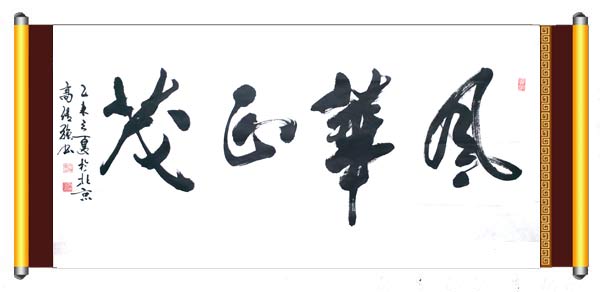 風華正茂
乙未之夏於北京
高